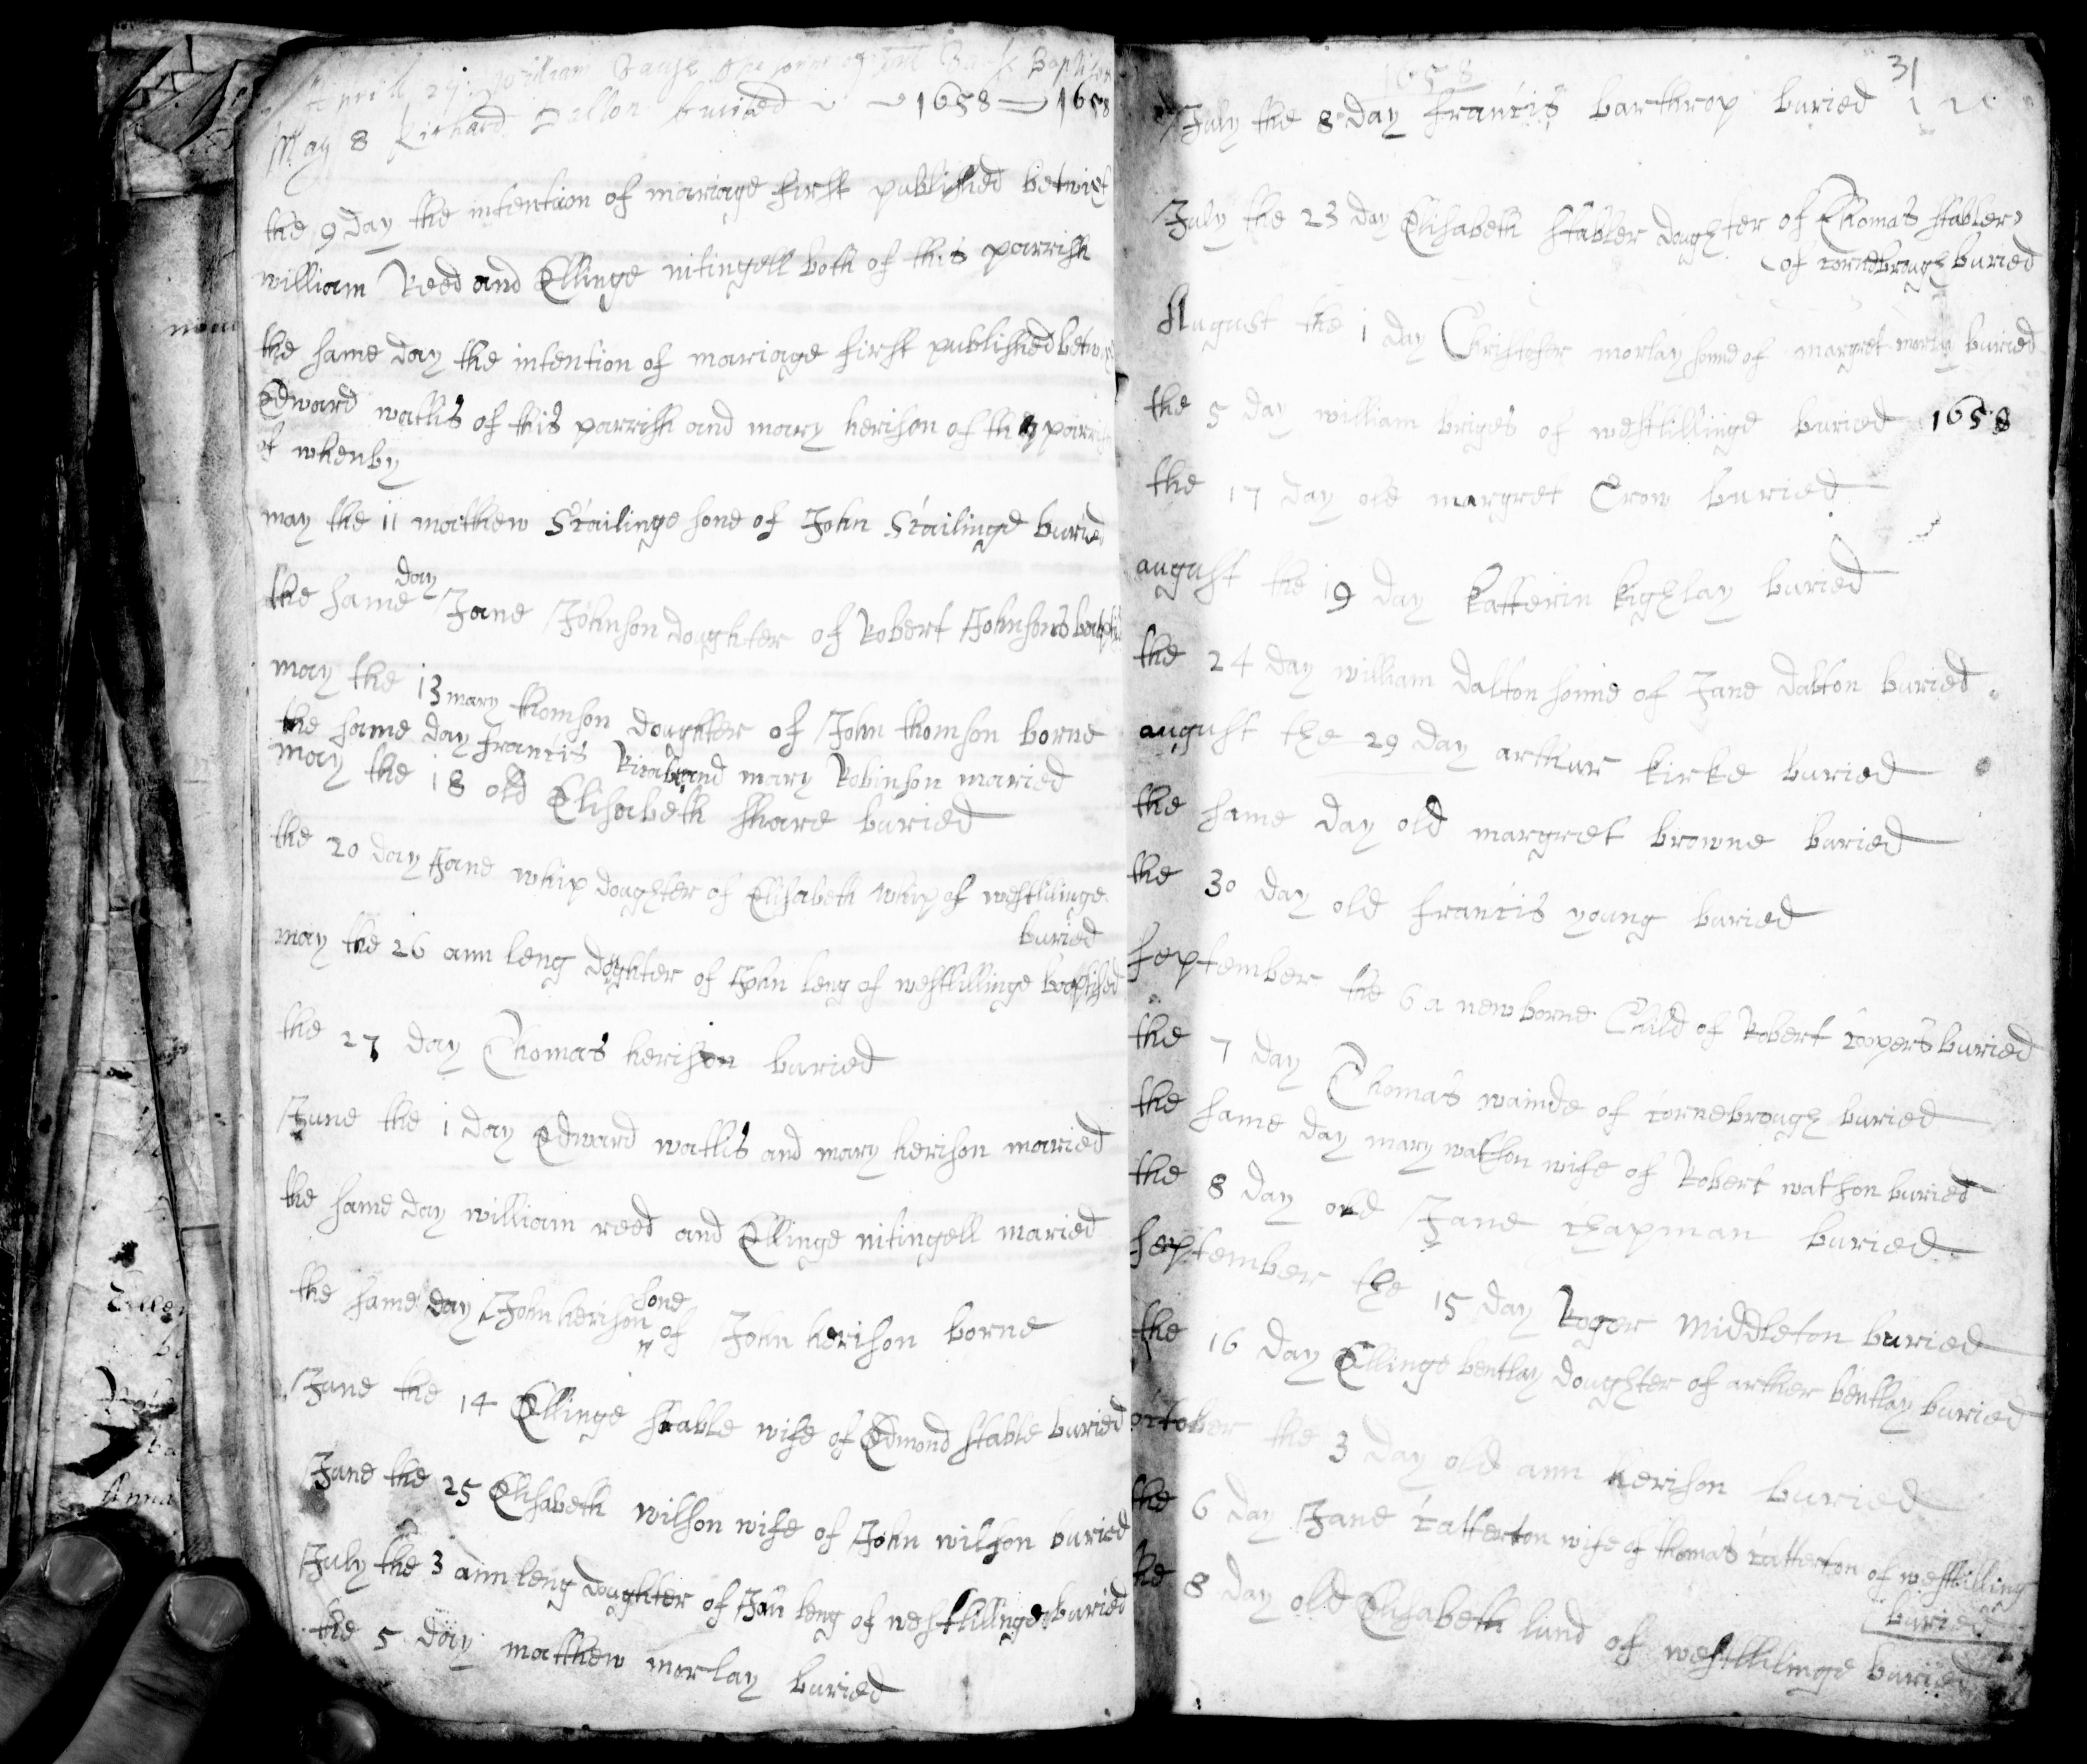 April 27 William the sonne of Baptized
May 8 Richard buried 1658 1658
the 9 day the intention of mariage first published betwixt
william Reed and Ellinge nitingell both of this parrish
the same day the intention of mariage first published betw
Edward watlis of this parrish and mary herison of the parri
of whenby
may the 11 mathew Scailinge sone of John Scailinge burie
day
the same Jane Johnson doughter of Robert Johnson
may the 13 mary thomson doughter of John thomson borne
the same day francis and mary Robinson maried
may the 18 old Elisabeth share buried
the 20 day Jane whip doughter of Elisabeth whip of westlilinge
buried
may the 26 ann leng doghter of John leng of westlillinge baptised
the 27 day Thomas herison buried
June the 1 day Edward watlis and mary herison maried
the same day william reed and Ellinge nitingell maried
sone
the same day John herison of John herison borne
June the 14 Ellinge stable wife of Edmond stable buried
June the 25 Elisabeth wilson wife of John wilson buried
July the 3 ann leng doughter of leng of westlillinge buried
the 5 day matthew morlay buried
1658
31
July the 8 day francis barthrop buried
July the 23 day Elisabeth stabler doughter of Thomas stabler
of cornebrough buried
August the 1 day Christofer morlay sonne of margret morlay buried
the 5 day william briges of westlillinge buried 1658
the 17 day old margret Crow buried
august the 19 day Katterin kighlay buried
the 24 day william dalton sonne of Jane dalton buried
august the 29 day arthur kirke buried
the same day old margret browne buried
the 30 day old francis young buried
september the 6 a newborne Child of Robert coopers buried
the 7 day Thomas wainde of cornebrough buried
the same day mary watson wife of Robert watson buried
the 8 day old Jane chapman buried
september the 15 day Roger Middleton buried
the 16 day Ellinge bentlay doughter of arther bentlay buried
october the 3 day old ann herison buried
the 6 day Jane catterton wife of thomas catterton of westlilling
buried
the 8 day old Elisabeth lund of westlilinge buried